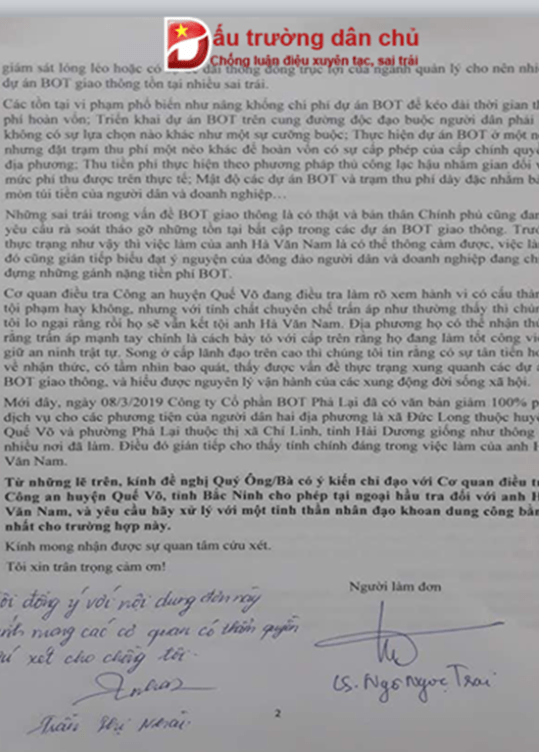 ấu trường dân chủ
Chống luận điệu xuyên tạc, sai trái
giám sát lỏng lẻo hoặc có sự đồng trục lợi của ngành quản lý cho nên nhi
dự án BOT giao thông tồn tại nhiều sai trái.
Các tồn tại vi phạm phổ biến như nâng khống chi phí dự án BOT để kéo dài thời gian th
phí hoàn vốn; Triển khai dự án BOT trên cung đường độc đạo buộc người dân phải
không có sự lựa chọn nào khác như một sự cưỡng buộc; Thực hiện dự án BOT ở một n
nhưng đặt trạm thu phí một nẻo khác để hoàn vốn có sự cấp phép của cấp chính quy
địa phương; Thu tiền phí thực hiện theo phương pháp thủ công lạc hậu nhằm gian dối v
mức phí thu được trên thực tế; Mật độ các dự án BOT và trạm thu phí dày đặc nhằm b
mòn túi tiền của người dân và doanh nghiệp…
Những sai trái trong vấn đề BOT giao thông là có thật và bản thân Chính phủ cũng đan
yêu cầu rà soát tháo gỡ những tồn tại bất cập trong các dự án BOT giao thông. Trư
thực trạng như vậy thì việc làm của anh Hà Văn Nam là có thể thông cảm được, việc là
đó cũng gián tiếp biểu đạt ý nguyện của đông đảo người dân và doanh nghiệp đang ch
đựng những gánh nặng tiền phí BOT.
Cơ quan điều tra Công an huyện Quế Võ đang điều tra làm rõ xem hành vi có cấu thàn
tội phạm hay không, nhưng với tính chất chuyên chế trấn áp như thường thấy thì chún
tôi lo ngại rằng rồi họ sẽ vẫn kết tội anh Hà Văn Nam. Địa phương họ có thể nhận thứ
rằng trấn áp mạnh tay chính là cách bày tỏ với cấp trên rằng họ đang làm tốt công vi
giữ an ninh trật tự. Song ở cấp lãnh đạo trên cao thì chúng tôi tin rằng có sự tân tiến hơ
về nhận thức, có tầm nhìn bao quát, thấy được vấn đề thực trạng xung quanh các dự á
BOT giao thông, và hiểu được nguyên lý vận hành của các xung động đời sống xã hội.
Mới đây, ngày 08/3/2019 Công ty Cổ phần BOT Phả Lại đã có văn bản giảm 100% p
dịch vụ cho các phương tiện của người dân hai địa phương là xã Đức Long thuộc huy
Quế Võ và phường Phả Lại thuộc thị xã Chí Linh, tỉnh Hải Dương giống như thông
nhiều nơi đã làm. Điều đó gián tiếp cho thấy tính chính đáng trong việc làm của anh H
Văn Nam.
Từ những lẽ trên, kính đề nghị Quý Ông/Bà có ý kiến chỉ đạo với Cơ quan điều tr
Công an huyện Quế Võ, tỉnh Bắc Ninh cho phép tại ngoại hầu tra đối với anh H
Văn Nam, và yêu cầu hãy xử lý với một tinh thần nhân đạo khoan dung công bằn
nhất cho trường hợp này.
Kính mong nhận được sự quan tâm cứu xét.
Tôi xin trân trọng cảm ơn!
Người làm đơn
ôi đồng ý với nội dung đơn này
ính mong các cơ quan có thẩm quyền
xét cho chồng tôi.
LS. Ngô Ngọc Trai
Trần Thị Nhài
2